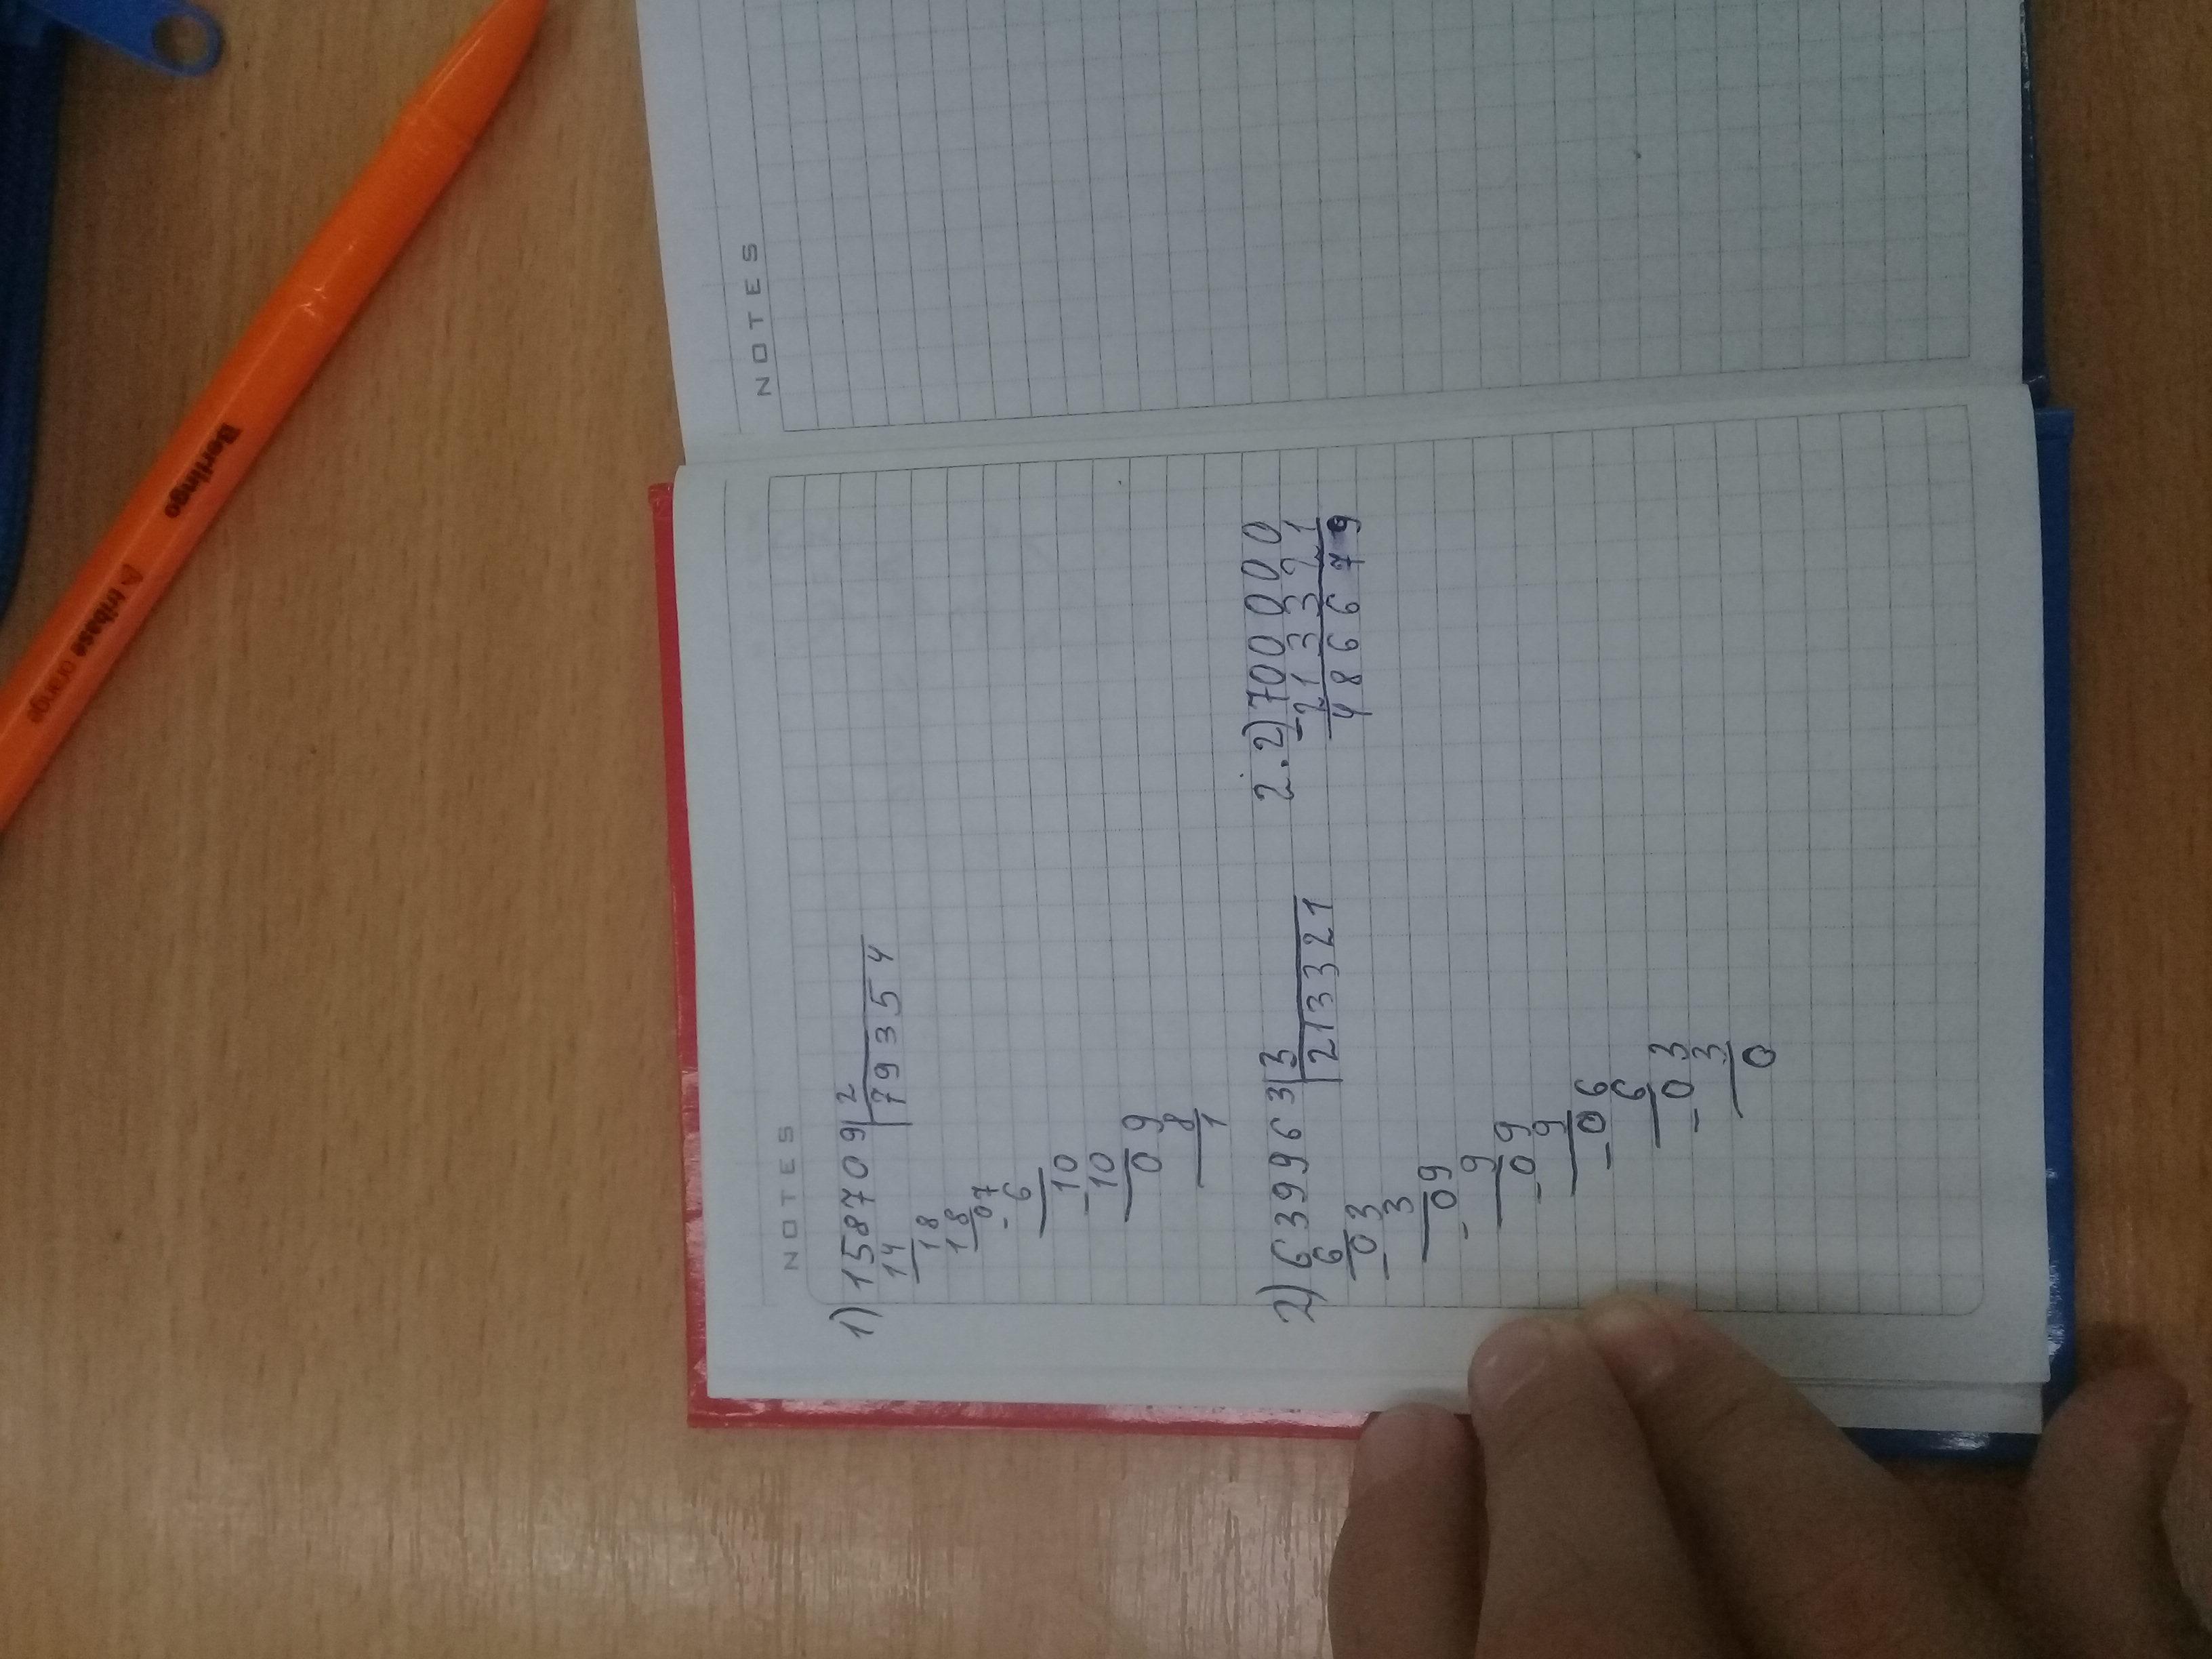 NOTES
1) 158709 | 2
14 79354
18
18
07
- 6
10
- 10
09
8
1
2) 639963 | 3
6 213321
03
- 3
09
- 9
09
- 9
06
- 6
03
- 3
0
2.2) 700000
- 213321
486679
NOTES
Berlingo
A tribase orange